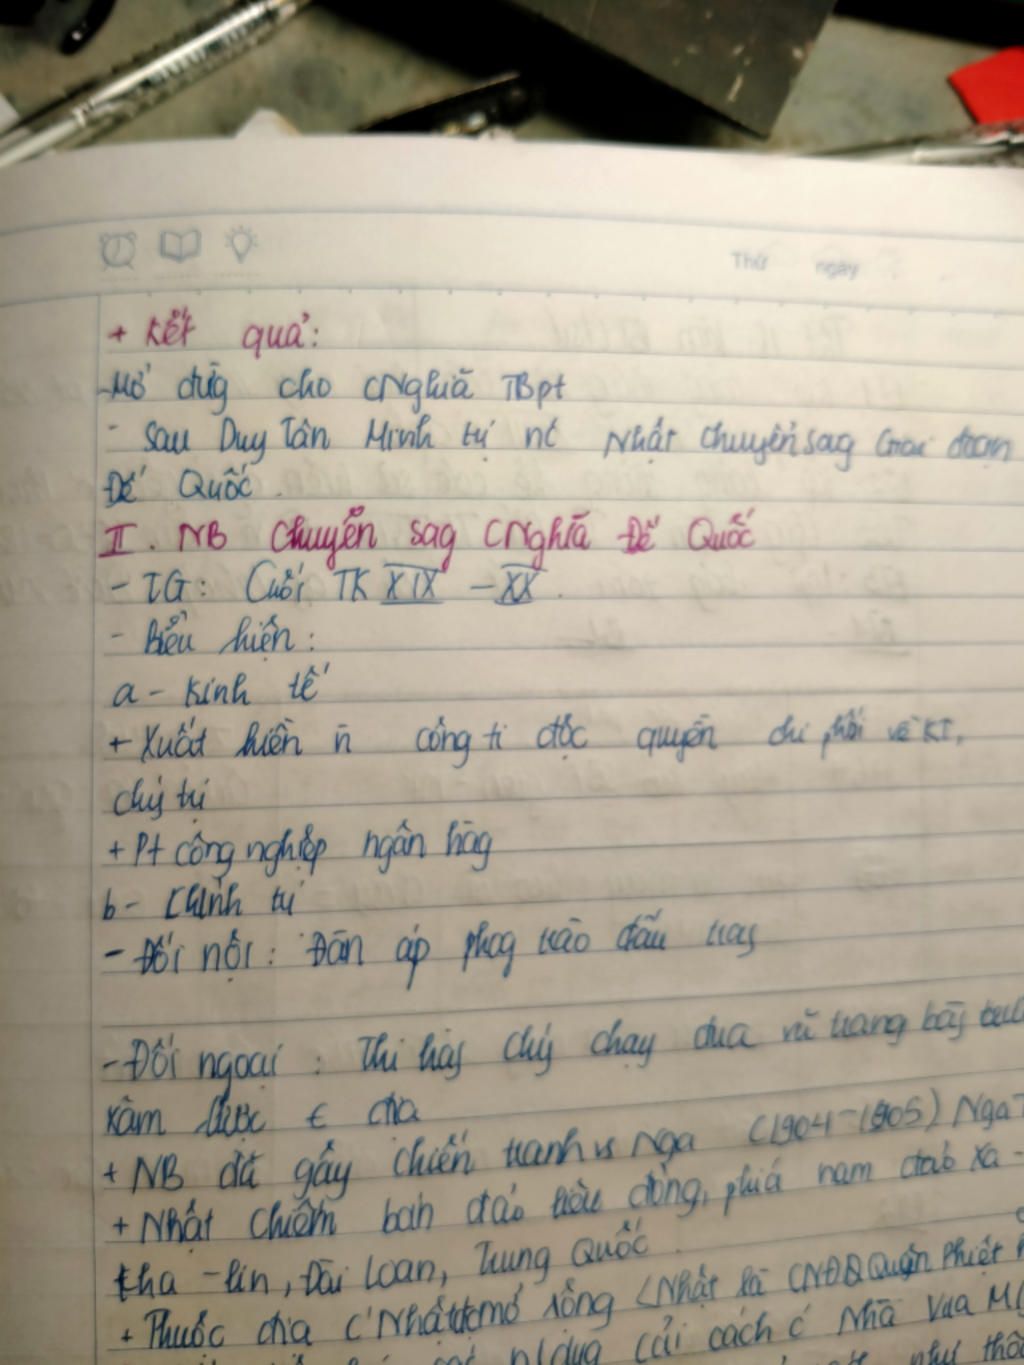 Thứ ngày
+ Kết quả:
- Mở đg cho CNghĩa TBpt
- Sau Duy Tân Minh trị nc Nhật chuyển sag Giai đoạn
Đế Quốc.
II. NB chuyển sag CNghĩa Đế Quốc
- TG: Cuối TK XIX - XX.
- Biểu hiện:
a - Kinh tế
+ Xuất hiện n̄ công ti độc quyền chi phối về KT,
chị trị
+ Pt công nghiệp ngân hàg
b - Chính trị
- Đối nội: Đàn áp phog trào đấu trag
- Đối ngoại: Thi hàg chý chạy đua vũ trang
xâm lược t địa
+ NB đã gây chiến tranh vs Nga (1904-1905) Nga
+ Nhật chiếm bán đảo Liêu đông, phía nam đảo Xa -
kha - lin, Đài Loan, Trung Quốc.
+ Thuộc địa C' Nhật đc mở rộng Nhật là CNĐQ Quân Phiệt
cải cách Nhà Vua
như